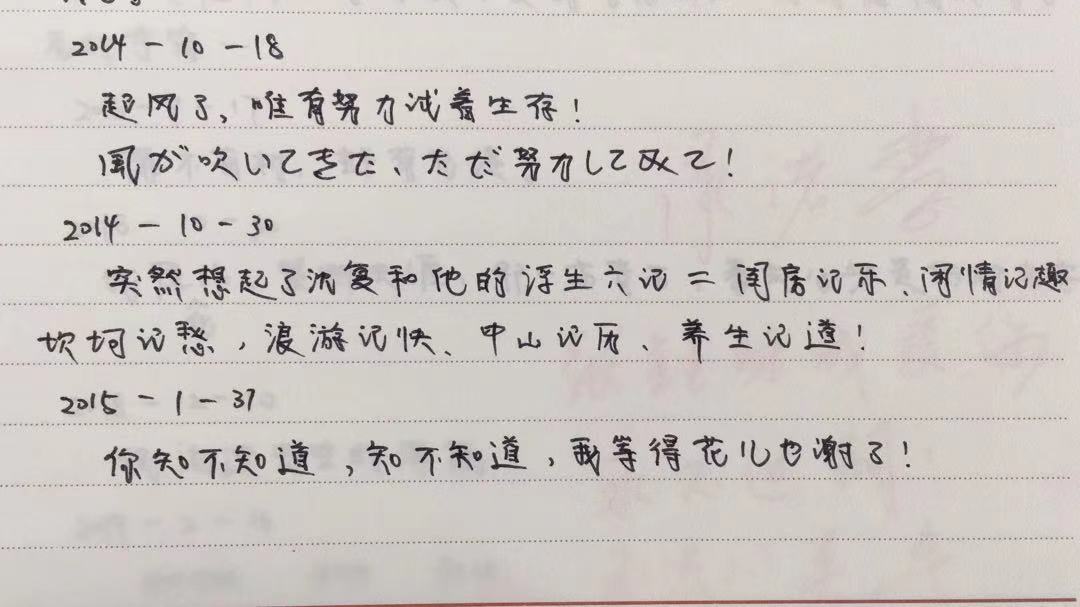 2014-10-18
起风了，唯有努力试着生存！
風が吹いてきた、ただ努力してみて！
2014-10-30
突然想起了沈复和他的浮生六记=闺房记乐、闲情记趣
坎坷记愁，浪游记快、中山记历、养生记道！
2015-1-31
你知不知道，知不知道，我等得花儿也谢了！